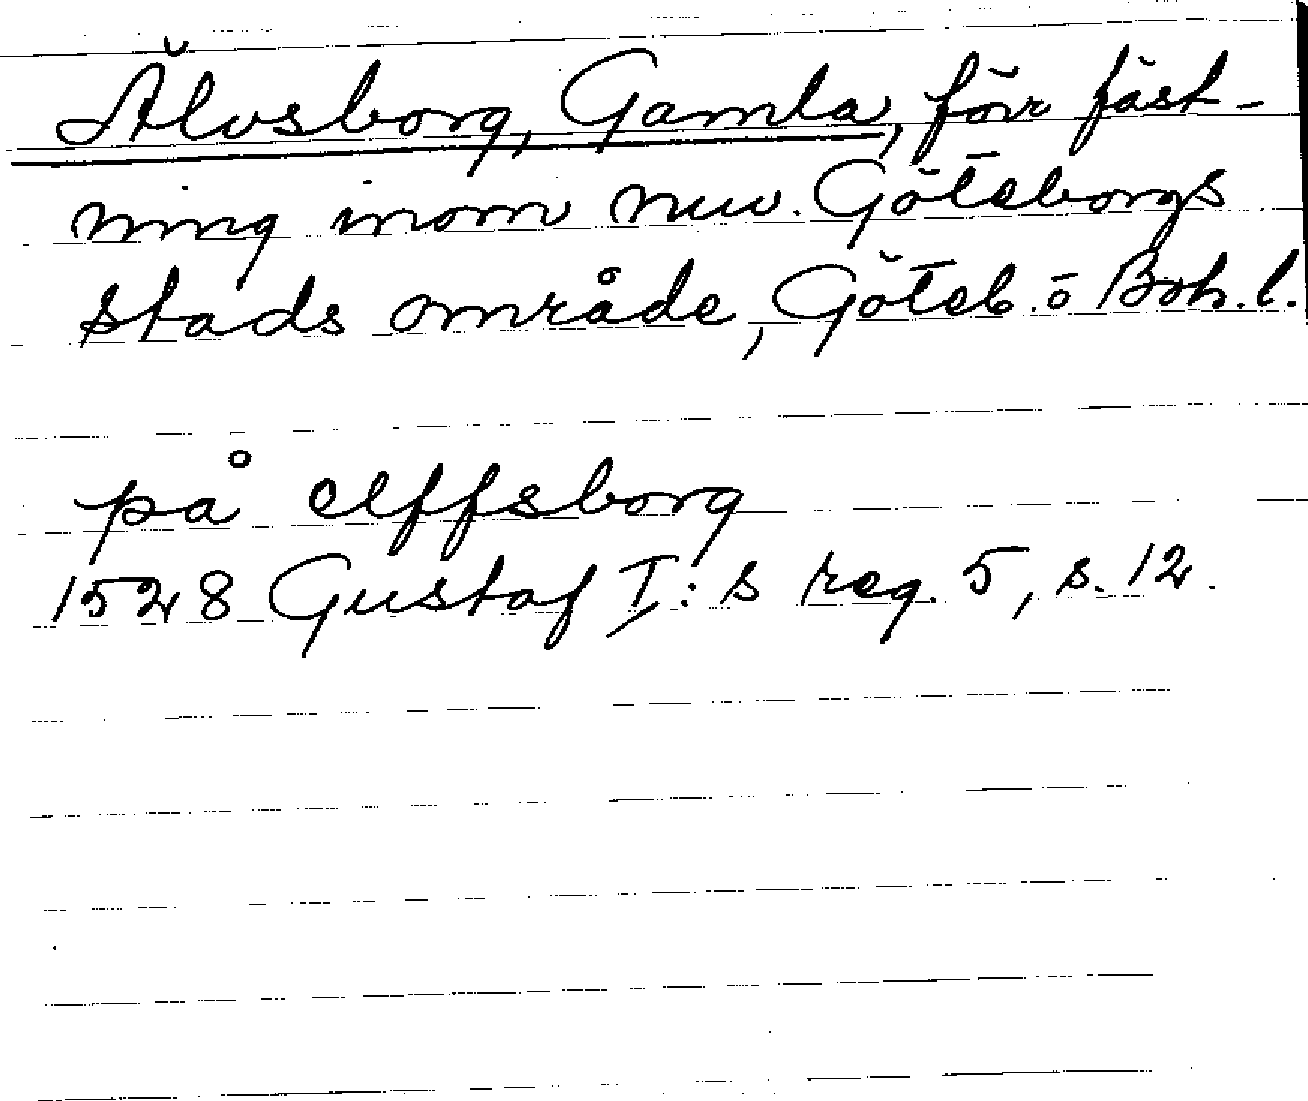 Älvsborg, Gamla, förr fäst-
ning inom nuv. Göteborgs
stads område, Göteb. o Boh. l.
på elffsborg
1528 Gustaf I:s reg. 5, s. 12.